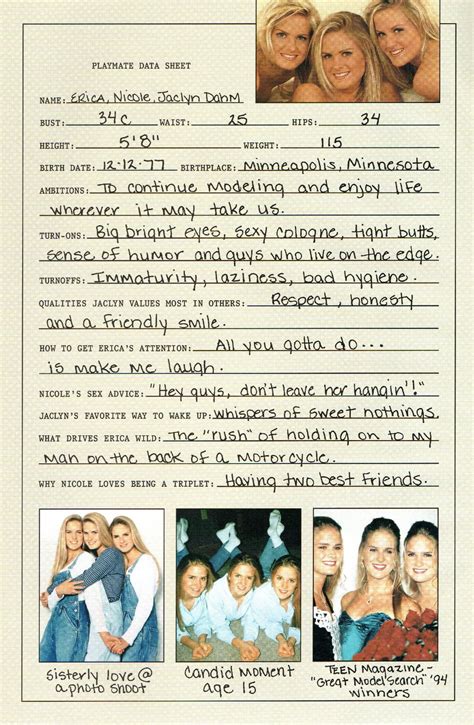 PLAYMATE DATA SHEET
NAME: Erica, Nicole, Jaclyn Dahm
BUST: 34C WAIST: 25 HIPS: 34
HEIGHT: 5'8" WEIGHT: 115
BIRTH DATE: 12-12-77 BIRTHPLACE: Minneapolis, Minnesota
AMBITIONS: To continue modeling and enjoy life
wherever it may take us.
TURN-ONS: Big bright eyes, sexy cologne, tight butts,
sense of humor and guys who live on the edge.
TURNOFFS: Immaturity, laziness, bad hygiene.
QUALITIES JACLYN VALUES MOST IN OTHERS: Respect, honesty
and a friendly smile.
HOW TO GET ERICA'S ATTENTION: All you gotta do...
is make me laugh.
NICOLE'S SEX ADVICE: "Hey guys, don't leave her hangin'!"
JACLYN'S FAVORITE WAY TO WAKE UP: Whispers of sweet nothings.
WHAT DRIVES ERICA WILD: The "rush" of holding on to my
man on the back of a motorcycle.
WHY NICOLE LOVES BEING A TRIPLET: Having two best friends.
Sisterly love @
a photo shoot
Candid moment
age 15
TEEN Magazine-
"Great Model Search" '94
winners